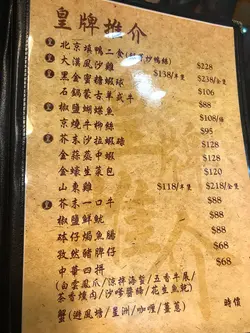 皇牌推介
北京填鴨二食(鴨絲)
大漠風沙雞 $228
黑金蜜糖蝦球 $138/半隻 $238/全隻
石鍋蒙古羊 $106
椒鹽蝴蝶魚 $88
京燒牛柳絲 $108/
芥末沙拉蝦球 $95
金蒜蒸中蝦 $128
金蠔生菜包 $120
山東雞 $118/半隻 $218/全隻
芥末一口牛 $88
椒鹽鮮魷 $88
砵仔焗魚腸 $68
孜然豬脾仔 $68
中華四拼
(白雲鳳爪/涼拌海蜇/五香牛展/
茶香燻肉/沙嗲醬腸/花生魚)
蟹(避風塘/星洲/咖喱/薑蔥) 時價